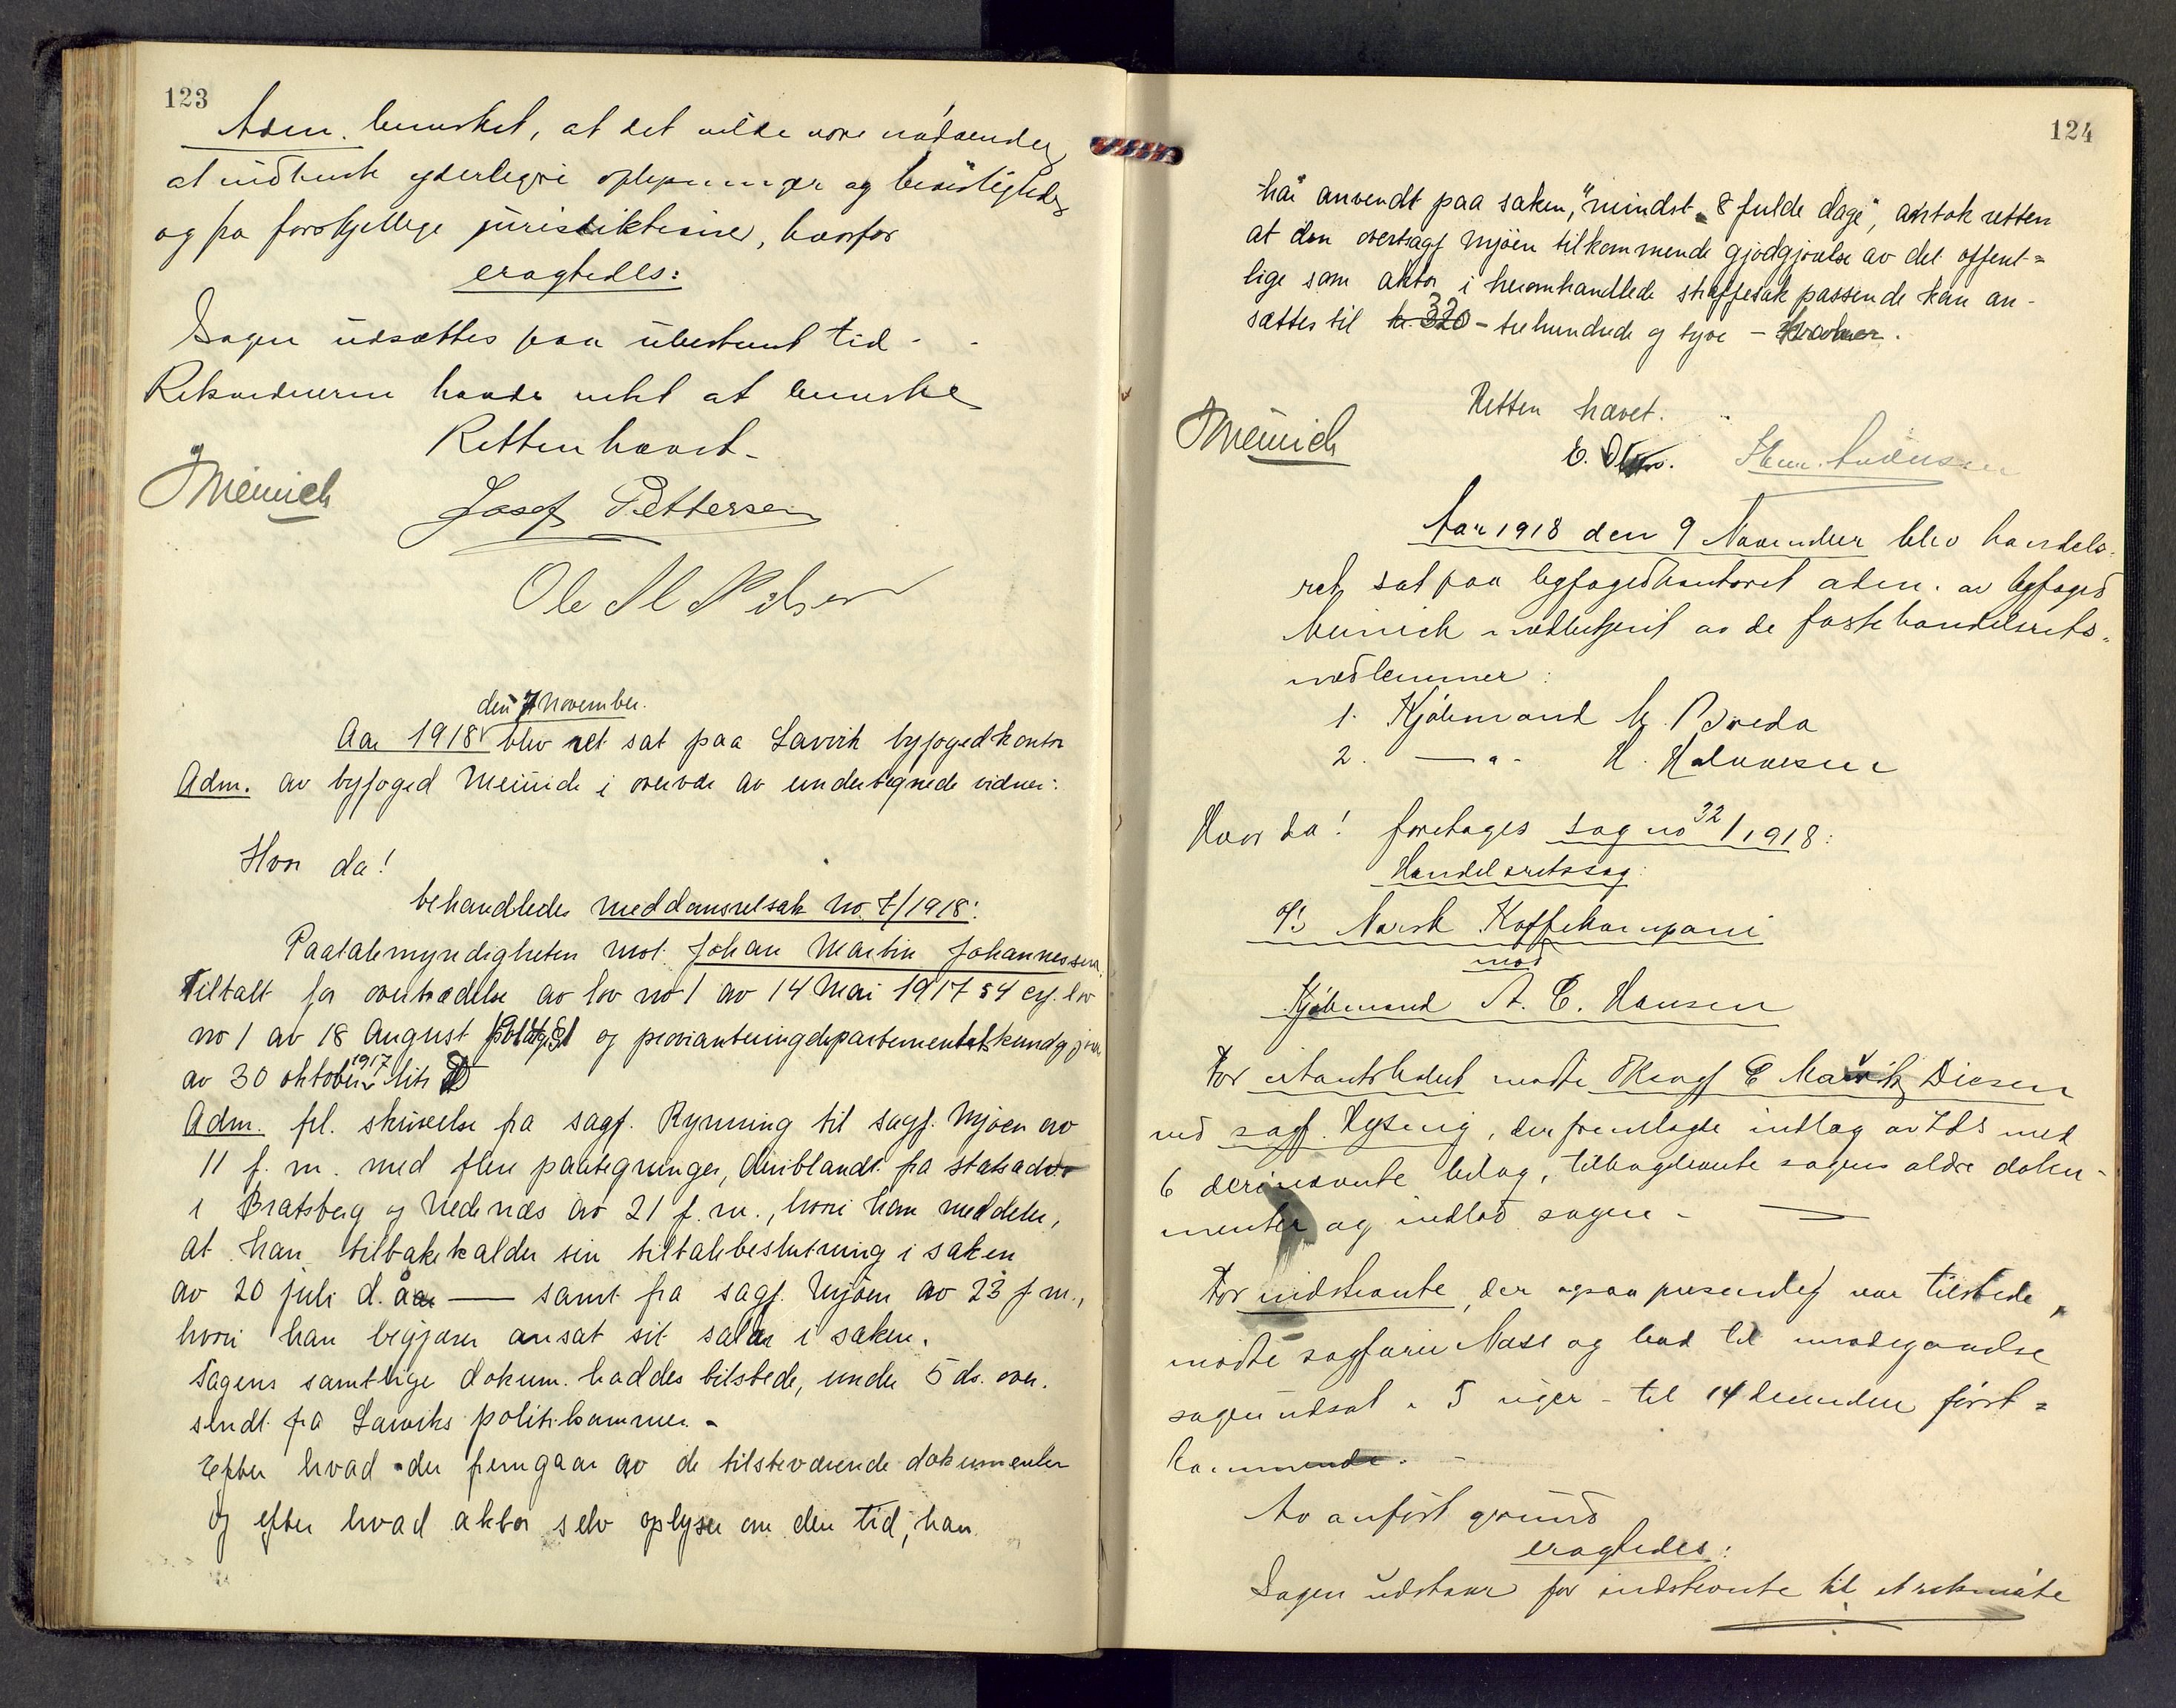 123
Adm. bemerket, at det vilde være nødvendig
at indhente yderligere oplysninger og bevisligheder
og fra forskjellige jurisdiktioner, hvorfor
eragtedes:
Sagen udsættes paa ubestemt tid -
Rekvednerne havde intet at bemerke
Retten hævet -
Meinich
Josef Pettersen
Ole M Nilsen
den 7 November.
Aar 1918 blev ret sat paa Larvik byfogedkontor
Adm. av byfoged Meinich i overvær av undertegnede vidner:
Hvor da!
behandledes meddomsretsak No. 7/1918:
Paatalemyndigheten mot Johan Martin Johannessen.
Tiltalt for overtrædelse av lov no 1 av 14 Mai 1917 § 4 cfr. lov
no 1 av 18 August og provianteringsdepartementets kundgjør
av 30 oktober 1917 litr
Adm. frl. skrivelse fra sagf. Rynning til sagf. Mjøen av
11 f. m. med flere paategninger, deriblandt fra statsadv
i Bratsberg og Nedenæs av 21 f. m., hvori han meddeler,
at han tilbakekalder sin tiltalebeslutning i saken
av 20 juli d. år — samt fra sagf. Mjøen av 23 f m.,
hvori han begjærer ansat sit salær i saken.
Sagens samtlige dokum. haddes tilstede, under 5 ds. over-
sendt fra Larviks politikammer. -
Efter hvad der fremgaar av de tilsteværende dokumenter
og efter hvad aktor selv oplyser om den tid, han
124
har anvendt paa saken, "mindst 8 fulde dage", antok retten
at den oversagf Mjöen tilkommende gjodgjørelse av det offent=
lige som aktor i heromhandlede straffesak passende kan an-
sættes til kr. 320 - trehundrede og tyve - Kroner.
Retten hævet.
Meinich
E. Olsen.
Aar 1918 den 9 November blev handels-
ret sat paa byfogedkontoret adm. av byfoged
Meinich medbetjent av de faste handelsrets-
medlemmer:
1. Kjøbmand M. Breda
2. — " - H. Halvorsen
Hvor da! foretages sag no 32/1918:
Handelsretssag:
A/S Norsk Kaffekompani
mod
Kjøbmand A. C. Hansen
For citantskabet mødte Oksagf C Diesen
ved sagf. , der fremlagde indlæg av 7 ds med
6 derinævnte bilag, tilbageleverte sagens ældre doku-
menter og indlod sagen -
For indstevnte, der ogsaa personlig var tilstede,
mødte sagfører Næss og bad til imødegaaelse
sagen udsat i 5 uger - til 14 december först=
kommende. -
Av anført grund
eragtedes:
Sagen udstaar for indstevnte til et retsmøte